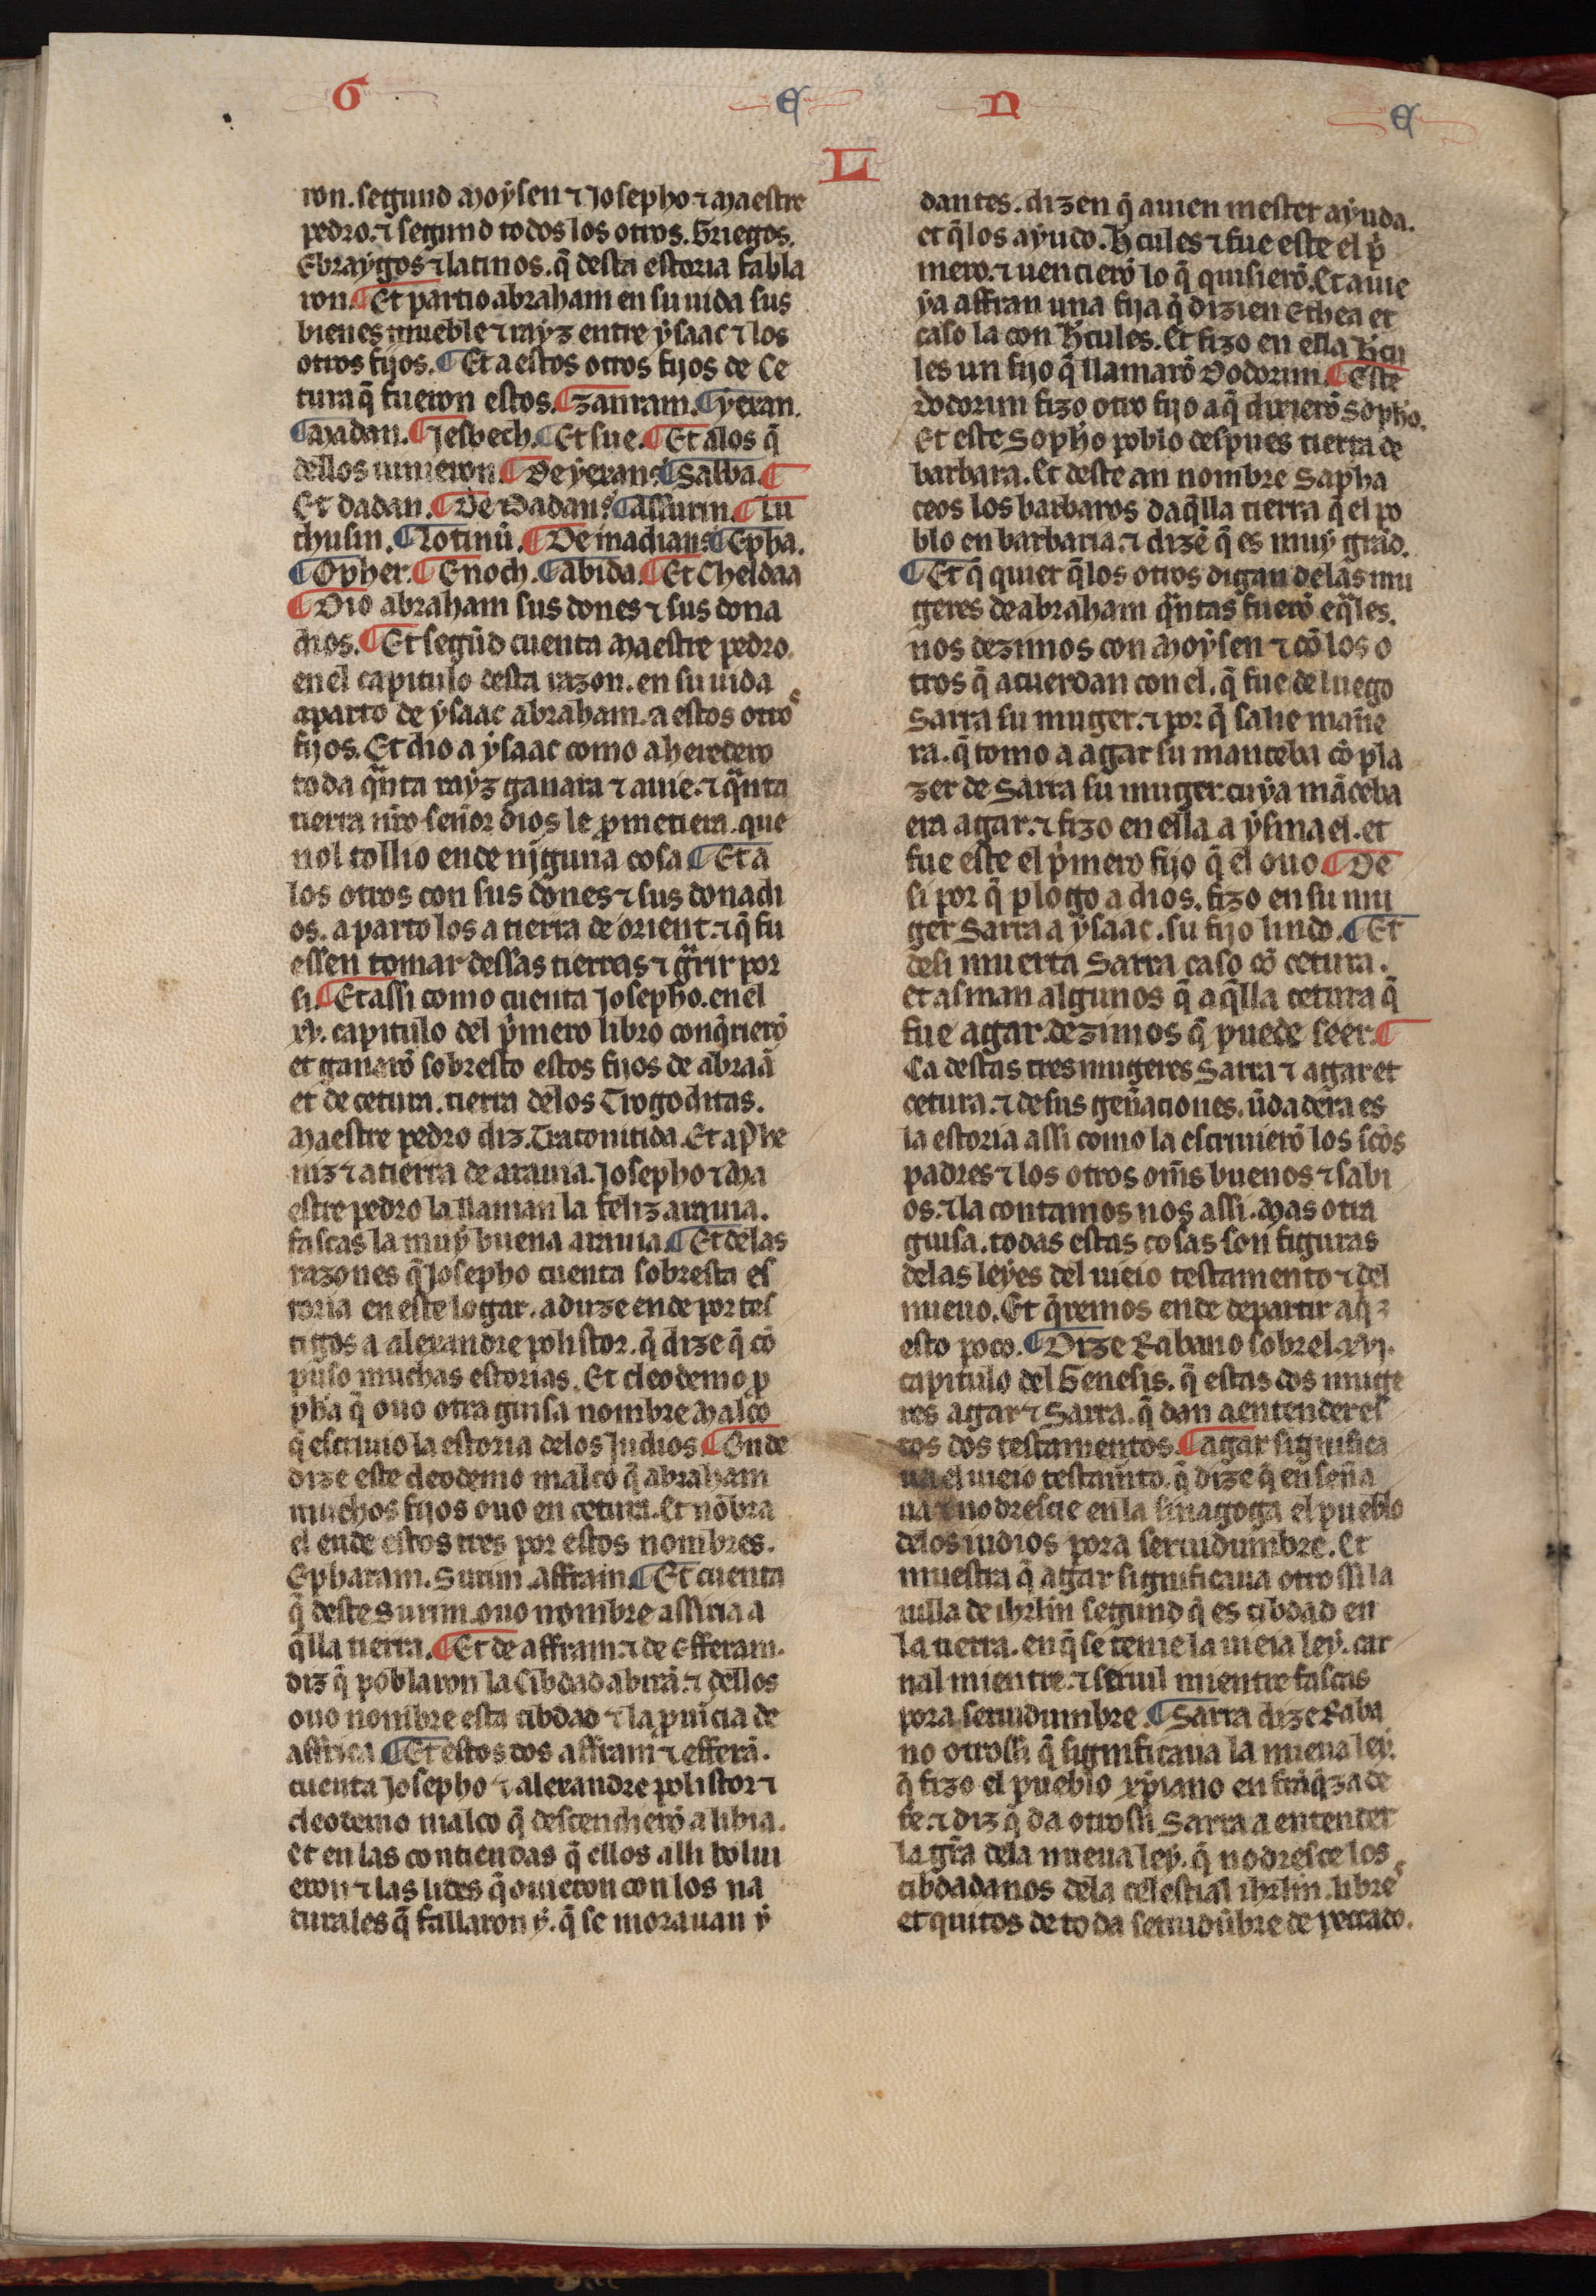 G E N E
L
ron. segund moẏsen ⁊ Josepho ⁊ maestre
pedro. ⁊ segund todos los otros. Griegos.
Ebraẏgos ⁊ latinos. q̃ desta estoria fabla
ron. ¶ Et partio abraham en su uida sus
bienes mueble ⁊ raẏz entre ẏsaac ⁊ los
otros fijos. ¶ Et a estos otros fijos de Ce
tura q̃ fueron estos. ¶ zamram. ¶ ẏexan.
¶ Madan. ¶ Jesbech. ¶ Et sue. ¶ Et alos q̃
dellos uinieron. ¶ De ẏexan. ¶ Salba. ¶
Et dadan. ¶ De Dadan. ¶ assurim. ¶ Lu
thusin. ¶ Lotinũ. ¶ De madian. ¶ Epha.
¶ Opher. ¶ Enoch. ¶ abida. ¶ Et Cheldaa
¶ Dio abraham sus dones ⁊ sus dona
dios. ¶ Et segũd cuenta maestre pedro.
en el capitulo desta razon. en su uida
aparto de ẏsaac abraham. a estos otros
fijos. Et dio a ẏsaac como a heredero
toda qᵃnta raẏz ganara ⁊ auie. ⁊ qᵃnta
tierra nr̃o señor dios le ꝓmetiera. que
nol tollio ende njguna cosa ¶ Et a
los otros con sus dones ⁊ sus donadi
os. aparto los a tierra de orient. ⁊ q̃ fu
essen tomar dessas tierras ⁊ gᵃrir por
si. ¶ Et assi como cuenta Josepho. en el
xv. capitulo del p̃mero libro conq̃rierõ
et ganarõ sobresto estos fijos de abraã
et de cetura. tierra delos Trogoditas.
Maestre pedro diz. Traconitida. Et a phe
niz ⁊ a tierra de arauia. Josepho ⁊ Ma
estre pedro la llaman la feliz arauia.
fascas la muẏ buena arauia. ¶ Et delas
razones q̃ Josepho cuenta sobresta es
toria en este logar. aduze ende por tes
tigos a alexandre polistor. q̃ dize q̃ cõ
puso muchas estorias. Et cleodemo ꝓ
pha q̃ ouo otra guisa nombre Malco
q̃ escriuio la estoria delos Judios ¶ Onde
dize este cleodemo malco q̃ abraham
muchos fijos ouo en cetura. Et nõbra
el ende estos tres por estos nombres.
Epharam. Surim. Affram. ¶ Et cuenta
q̃ deste surim. ouo nombre assiria a
q̃lla tierra. ¶ Et de affram. ⁊ de Efferam.
diz q̃ poblaron la cibdad abirã. ⁊ dellos
ouo nombre esta cibdad ⁊ la ꝓuicia de
affrica. ¶ Et estos dos affram ⁊ efferã.
cuenta Josepho ⁊ alexandre polistor ⁊
cleodemo malco q̃ descendierõ a libia.
Et en las contiendas q̃ ellos alli bolui
eron ⁊ las lides q̃ ouieron con los na
turales q̃ fallaron ẏ. q̃ se morauan ẏ
dantes. dizen q̃ auien mester aẏuda.
et q̃los aẏudo. H̃cules ⁊ fue este el p̃
mero. ⁊ uencierõ lo q̃ quisierõ. Et auie
ẏa affran una fija q̃ dizien Ethea et
caso la con H̃cules. Et fizo en ella H̃cu
les un fijo q̃ llamarõ Dodorim. ¶ Este
dodorim fizo otro fijo a q̃ dixierõ Sopho.
Et este Sopho poblo despues tierra de
barbara. Et deste an nombre Sapha
ceos los barbaros daq̃lla tierra q̃ el po
blo en barbaria. ⁊ dizẽ q̃ es muẏ grãd.
¶ Et q̃ quier q̃los otros digan delas mu
geres de abraham qᵃntas fuerõ eq̃les.
nos dezimos con Moẏsen ⁊ cõ los o
tros q̃ acuerdan con el. q̃ fue de luego
Sarra su muger. ⁊ por q̃ salie mañe
ra. q̃ tomo a agar su manceba cõ pla
zer de Sarra su muger. cuẏa mãceba
era agar. ⁊ fizo en ella a ẏsmael. et
fue este el p̃mero fijo q̃ el ouo ¶ De
si por q̃ plogo a dios. fizo en su mu
ger Sarra a ẏsaac. su fijo lindo. ¶ Et
desi muerta Sarra caso cõ cetura.
et asman algunos q̃ aq̃lla cetura q̃
fue agar. dezimos q̃ puede seer. ¶
Ca destas tres mugeres Sarra ⁊ agar et
cetura. ⁊ de sus geñaciones. ũdadera es
la estoria assi como la escriuierõ los scõs
padres ⁊ los otros om̃s buenos ⁊ sabi
os. ⁊ la contamos nos assi. Mas otra
guisa. todas estas cosas son figuras
delas leẏes del uieio testamento ⁊ del
nueuo. Et q̃remos ende departir aq̃
esto poco. ¶ Dize Rabano sobrel. xvj.
capitulo del Genesis. q̃ estas dos muge
res agar ⁊ Sarra. q̃ dan a entender es
tos dos testamentos. ¶ agar significa
ua el uieio testam̃to. q̃ dize q̃ enseña
ua ⁊ nodrescie en la sinagoga el pueblo
delos iudios pora seruidumbre. Et
muestra q̃ agar significaua otrossi la
uilla de ihrlm̃ segund q̃ es cibdad en
la tierra. en q̃ se tenie la uieia leẏ. car
nal mientre. ⁊ seruil mientre fascas
pora seruidumbre. ¶ Sarra dize Raba
no otrossi q̃ significaua la nueua leẏ.
q̃ fizo el pueblo xp̃iano en frãq̃za de
fe. ⁊ diz q̃ da otrossi Sarra a entender
la gr̃a dela nueua leẏ. q̃ nodresce los
cibdadanos dela celestial ihrlm̃. libres
et quitos de toda seruidũbre de peccado.